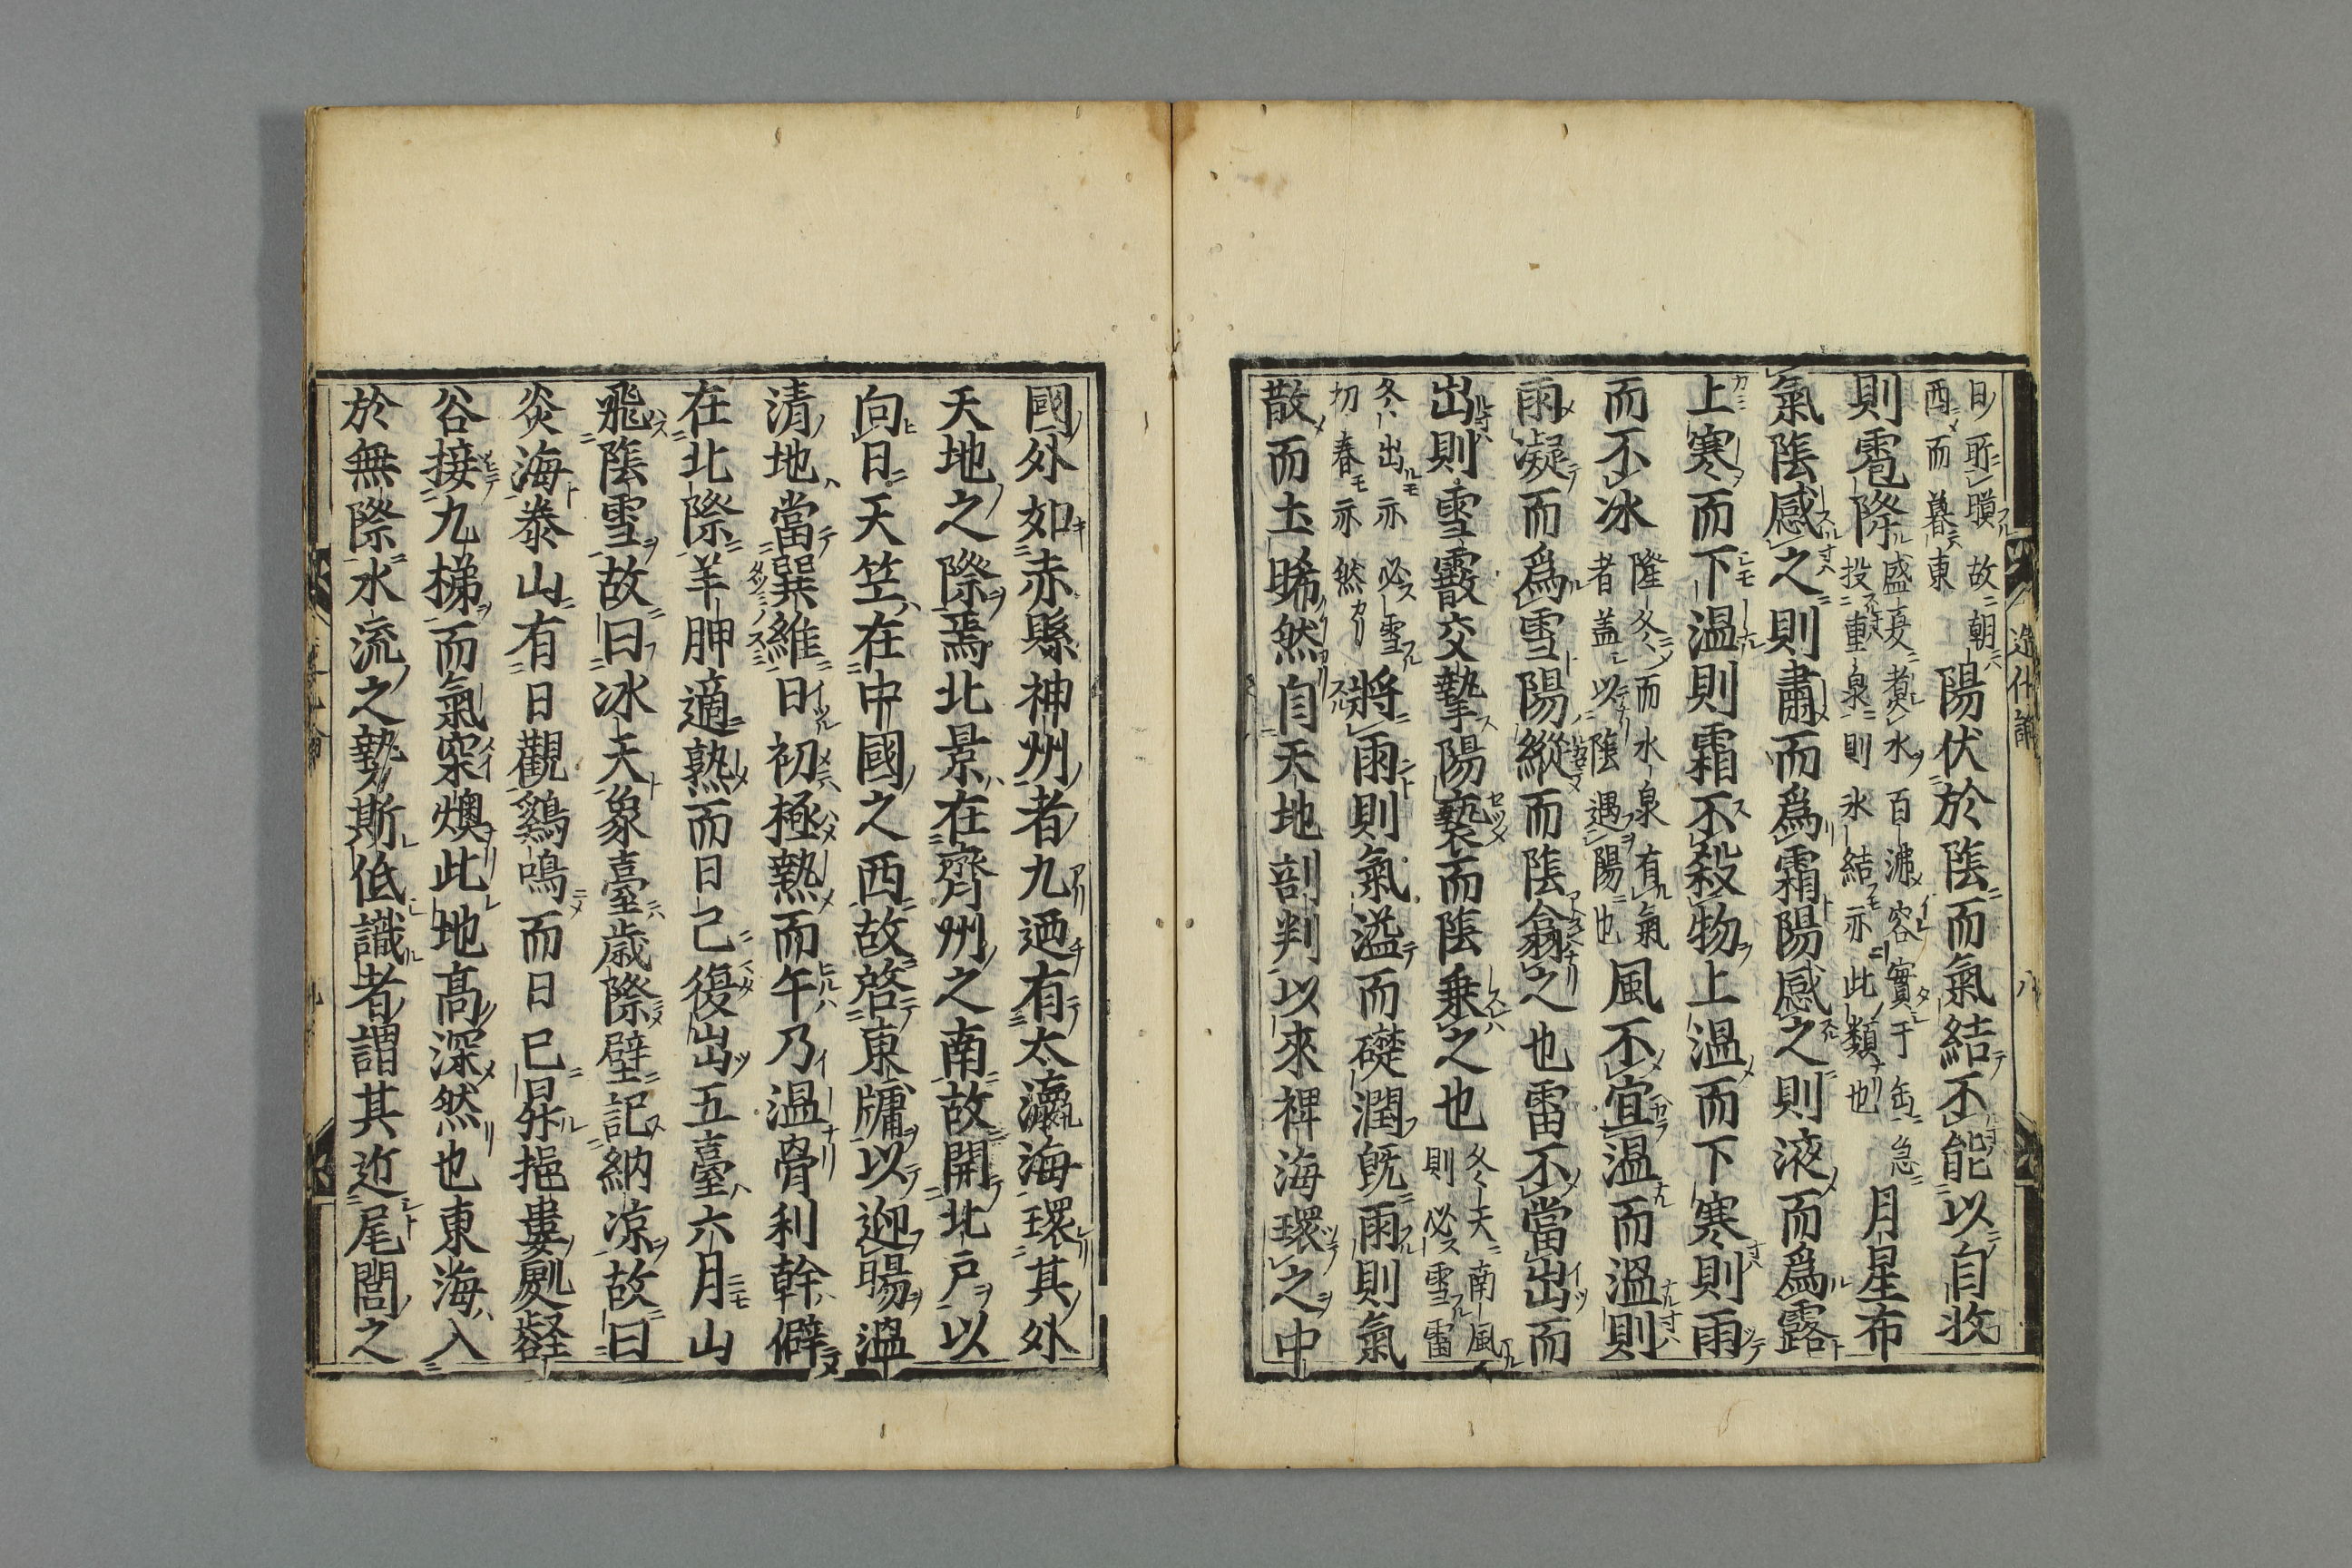 日所暵故朝西而暮東陽伏於隂而氣結不能以自收
則雹降盛夏煮水百沸容實于缶急投重泉則氷結亦此類也月星布
氣隂感之則肅而爲霜陽感之則液而爲露
上寒而下温則霜不殺物上温而下寒則雨
而不冰隆冬而水泉有氣者盖以隂遇陽也風不宜温而温則
雨凝而爲雪陽縱而隂翕之也雷不當出而
出則雪霰交摯陽褻而隂乗之也冬天南風則必雪雷
冬出亦必雪初春亦然將雨則氣溢而礎潤旣雨則氣
散而土晞然自天地剖判以來裨海環之中
國外如赤縣神州者九迺有太瀛海環其外
天地之際焉北景在齊州之南故開北戸以
向日天竺在中國之西故啓東牖以迎暘温
清地當巽維日初極熱而午乃温骨利幹僻
在北際羊胛適熟而日已復出五臺六月山
飛隂雪故曰冰天象臺歳際壁記納凉故曰
炎海泰山有日觀鷄鳴而日已昇挹婁
谷接九梯而氣燠此地高深然也東海入
於無際水流之勢斯低識者謂其近尾閭之